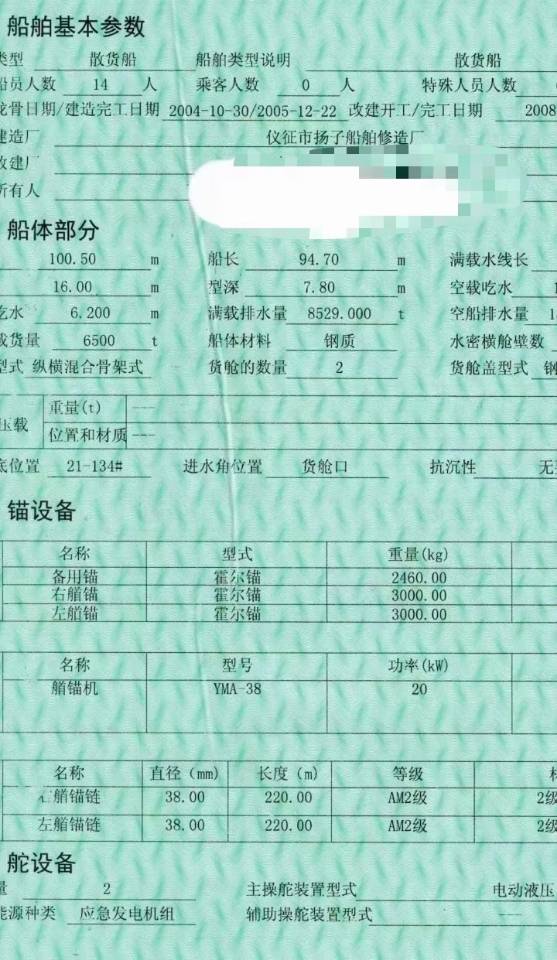 船舶基本参数
类型 散货船 船舶类型说明 散货船
船员人数 14 人 乘客人数 0 人 特殊人员人数
龙骨日期/建造完工日期 2004-10-30/2005-12-22 改建开工/完工日期 2008
建造厂 仪征市扬子船舶修造厂
改建厂
所有人
船体部分
100.50 m 船长 94.70 m 满载水线长
16.00 m 型深 7.80 m 空载吃水
吃水 6.200 m 满载排水量 8529.000 t 空船排水量
载货量 6500 t 船体材料 钢质 水密横舱壁数
型式 纵横混合骨架式 货舱的数量 2 货舱盖型式 钢
压载 重量(t) ---
位置和材质 ---
底位置 21-134# 进水角位置 货舱口 抗沉性 无
锚设备
名称 型式 重量(kg)
备用锚 霍尔锚 2460.00
右艏锚 霍尔锚 3000.00
左艏锚 霍尔锚 3000.00
名称 型号 功率(kW)
艏锚机 YMA-38 20
名称 直径(mm) 长度(m) 等级
右艏锚链 38.00 220.00 AM2级 2级
左艏锚链 38.00 220.00 AM2级 2级
舵设备
量 2 主操舵装置型式 电动液压
能源种类 应急发电机组 辅助操舵装置型式 ---